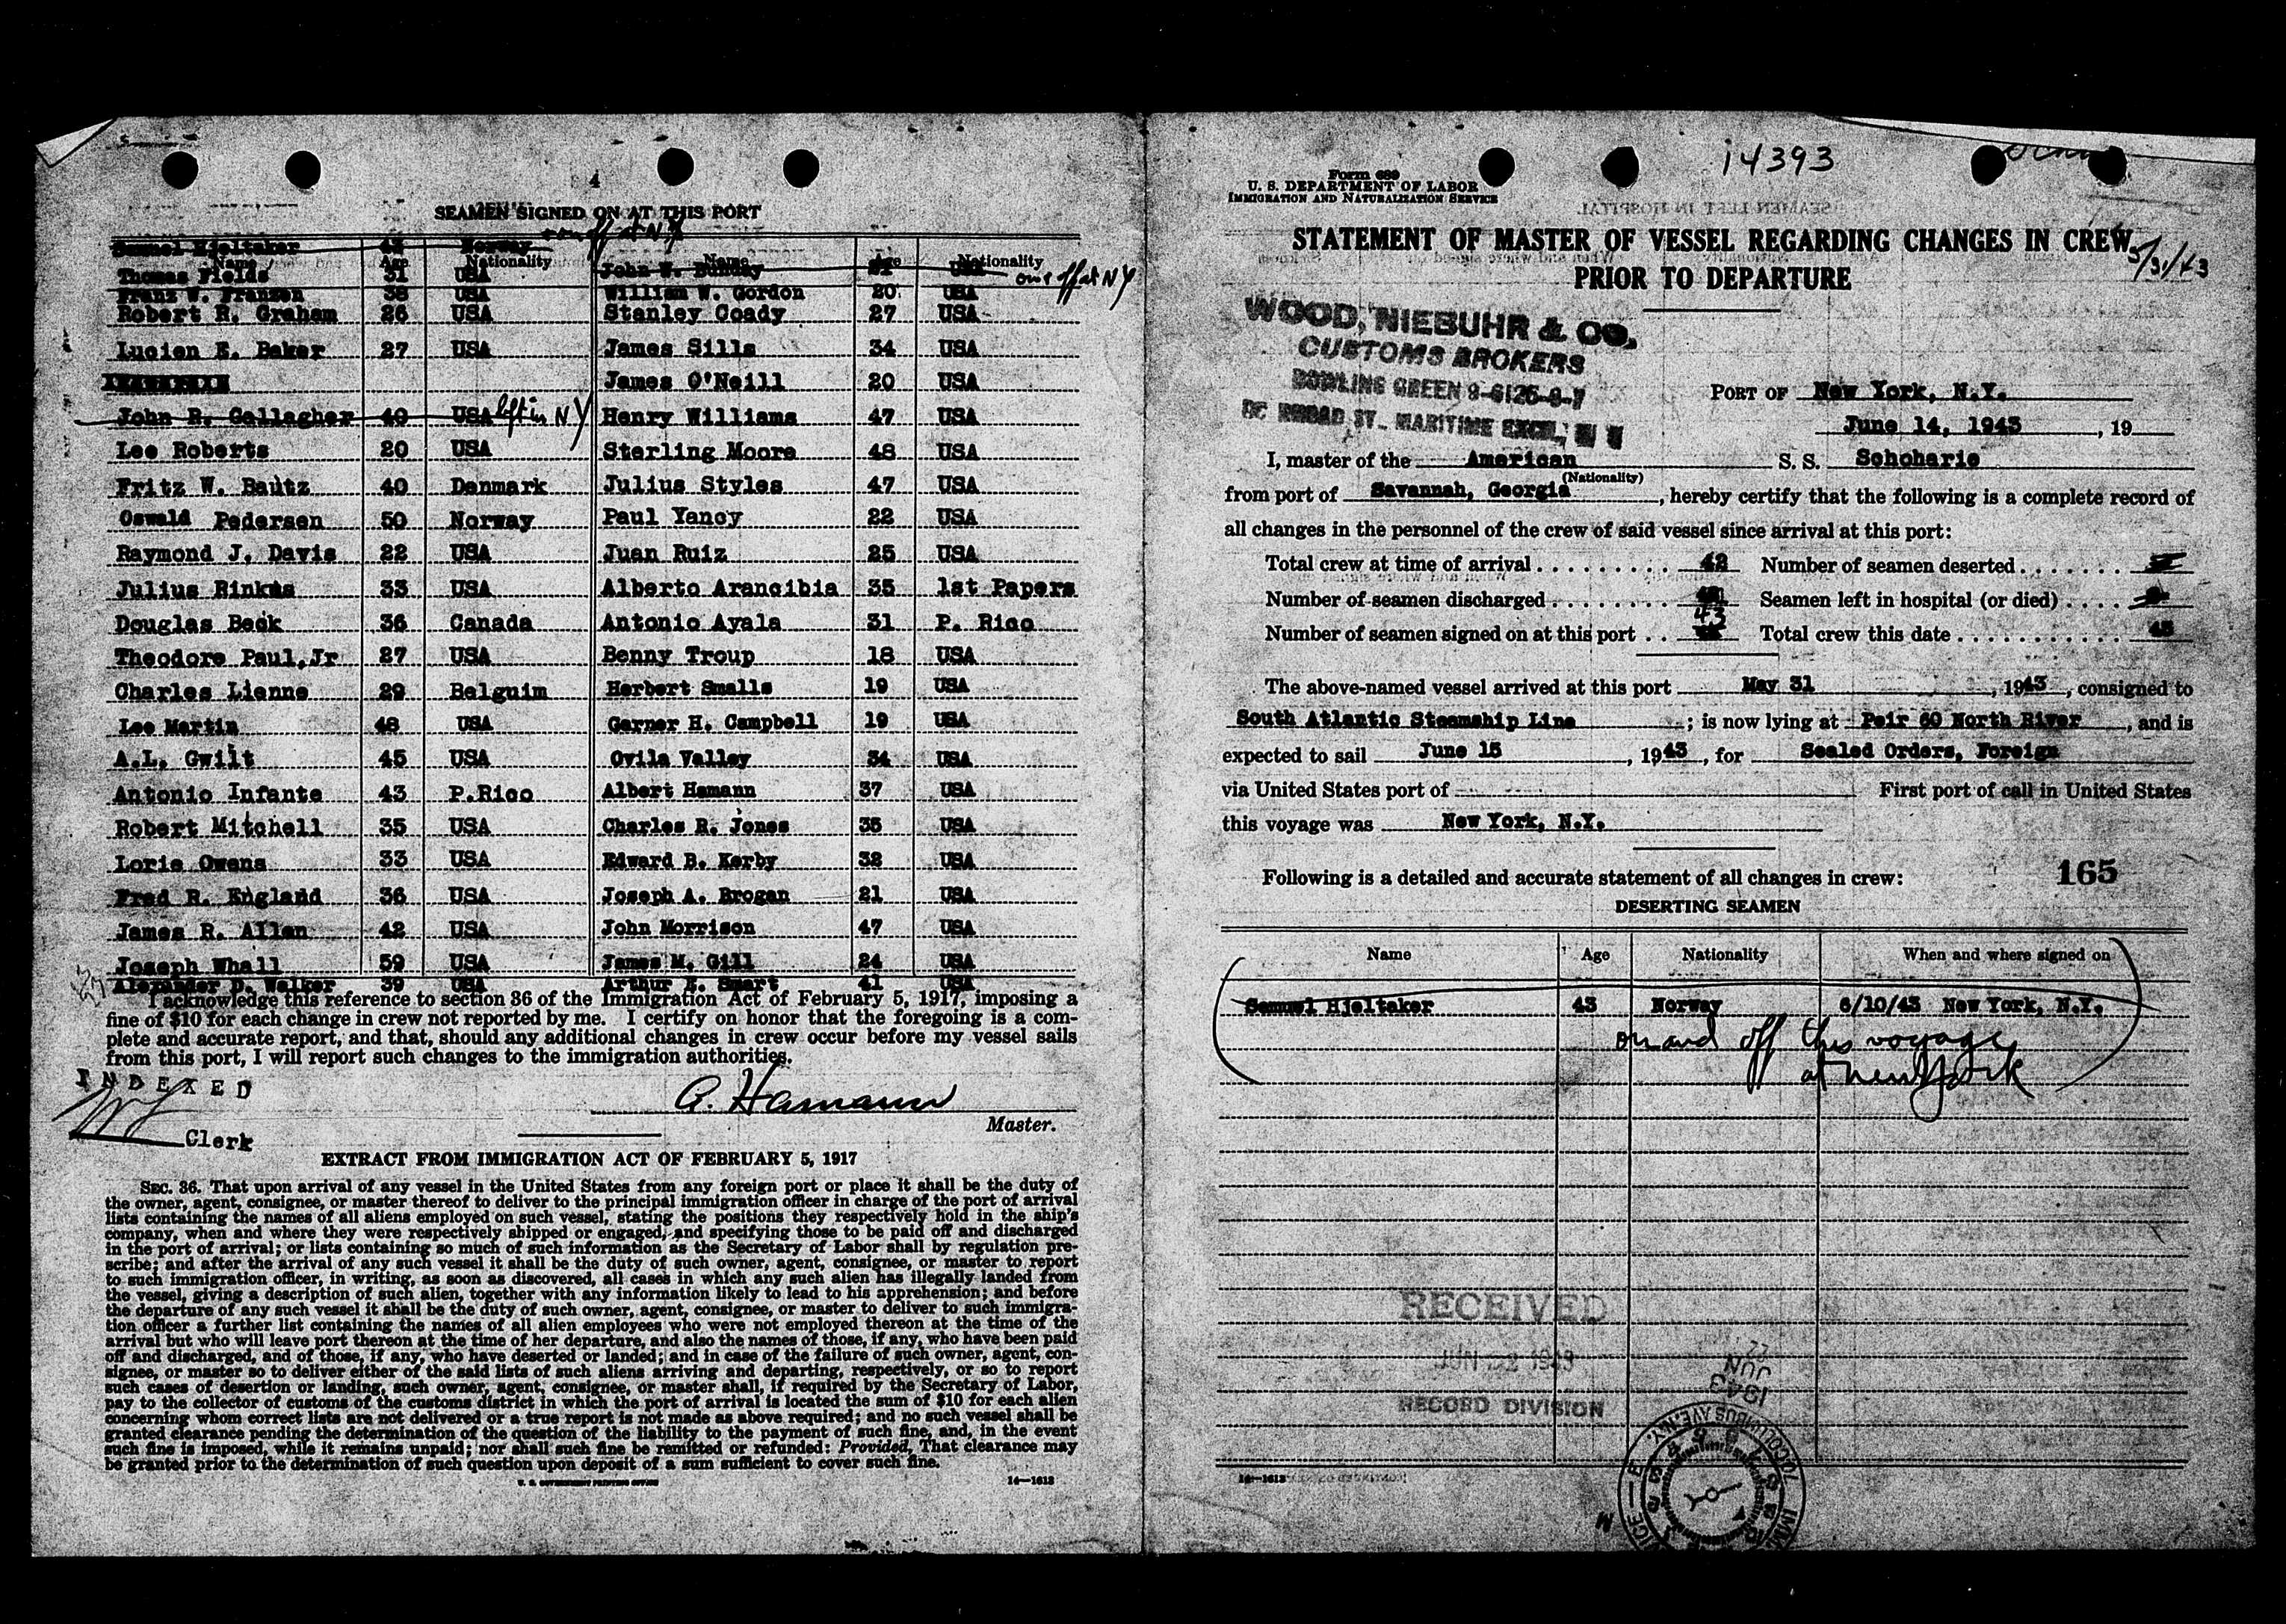 4
SEAMEN SIGNED ON AT THIS PORT
on off at NY
Name Age Nationality Name Age Nationality
Samuel Hjeltaker 43 Norway
Thomas Fields 31 USA John W. Bunday USA on & off at NY
Franz W. Franzen 38 USA William W. Gordon 20 USA
Robert R. Graham 26 USA Stanley Coady 27 USA
Lucien E. Baker 27 USA James Sills 34 USA
James O'Neill 20 USA
John R. Gallagher 40 USA left in NY Henry Williams 47 USA
Lee Roberts 20 USA Sterling Moore 48 USA
Fritz W. Bautz 40 Denmark Julius Styles 47 USA
Oswald Pedersen 50 Norway Paul Yancy 22 USA
Raymond J. Davis 22 USA Juan Ruiz 25 USA
Julius Rinkus 33 USA Alberto Arancibia 35 1st Papers
Douglas Beck 36 Canada Antonio Ayala 31 P. Rico
Theodore Paul, Jr 27 USA Benny Troup 18 USA
Charles Lienne 29 Belguim Herbert Smalls 19 USA
Lee Martin 48 USA Garner H. Campbell 19 USA
A.L. Gwilt 45 USA Ovila Valley 34 USA
Antonio Infante 43 P.Rico Albert Hamann 37 USA
Robert Mitchell 35 USA Charles R. Jones 35 USA
Loris Owens 33 USA Edward B. Kerby 32 USA
Fred R. England 36 USA Joseph A. Brogan 21 USA
James R. Allen 42 USA John Morrison 47 USA
Joseph Whall 59 USA James M. Gill 24 USA
Alexander D. Walker 39 USA Arthur E. Smart 41 USA
I acknowledge this reference to section 36 of the Immigration Act of February 5, 1917, imposing a
fine of $10 for each change in crew not reported by me. I certify on honor that the foregoing is a com-
plete and accurate report, and that, should any additional changes in crew occur before my vessel sails
from this port, I will report such changes to the immigration authorities.
INDEXED
A. Hamann
Master.
Clerk
EXTRACT FROM IMMIGRATION ACT OF FEBRUARY 5, 1917
SEC. 36. That upon arrival of any vessel in the United States from any foreign port or place it shall be the duty of
the owner, agent, consignee, or master thereof to deliver to the principal immigration officer in charge of the port of arrival
lists containing the names of all aliens employed on such vessel, stating the positions they respectively hold in the ship's
company, when and where they were respectively shipped or engaged, and specifying those to be paid off and discharged
in the port of arrival; or lists containing so much of such information as the Secretary of Labor shall by regulation pre-
scribe; and after the arrival of any such vessel it shall be the duty of such owner, agent, consignee, or master to report
to such immigration officer, in writing, as soon as discovered, all cases in which any such alien has illegally landed from
the vessel, giving a description of such alien, together with any information likely to lead to his apprehension; and before
the departure of any such vessel it shall be the duty of such owner, agent, consignee, or master to deliver to such immigra-
tion officer a further list containing the names of all alien employees who were not employed thereon at the time of the
arrival but who will leave port thereon at the time of her departure, and also the names of those, if any, who have been paid
off and discharged, and of those, if any, who have deserted or landed; and in case of the failure of such owner, agent, con-
signee, or master so to deliver either of the said lists of such aliens arriving and departing, respectively, or so to report
such cases of desertion or landing, such owner, agent, consignee, or master shall, if required by the Secretary of Labor,
pay to the collector of customs of the customs district in which the port of arrival is located the sum of $10 for each alien
concerning whom correct lists are not delivered or a true report is not made as above required; and no such vessel shall be
granted clearance pending the determination of the question of the liability to the payment of such fine, and, in the event
such fine is imposed, while it remains unpaid; nor shall such fine be remitted or refunded: Provided, That clearance may
be granted prior to the determination of such question upon deposit of a sum sufficient to cover such fine.
U. S. GOVERNMENT PRINTING OFFICE 14—1613
14393
Form 689
U. S. DEPARTMENT OF LABOR
IMMIGRATION AND NATURALIZATION SERVICE
STATEMENT OF MASTER OF VESSEL REGARDING CHANGES IN CREW
PRIOR TO DEPARTURE
5/31/43
WOOD, NIEBUHR & CO.
CUSTOMS BROKERS
BOWLING GREEN 9-6125-6-7
BROAD ST. MARITIME
PORT OF New York, N.Y.
June 14, 1943, 19
I, master of the American S. S. Schoharie
(Nationality)
from port of Savannah, Georgia, hereby certify that the following is a complete record of
all changes in the personnel of the crew of said vessel since arrival at this port:
Total crew at time of arrival 42 Number of seamen deserted
Number of seamen discharged Seamen left in hospital (or died)
Number of seamen signed on at this port 43 Total crew this date 43
The above-named vessel arrived at this port May 31, 1943, consigned to
South Atlantic Steamship Line; is now lying at Peir 60 North River, and is
expected to sail June 15, 1943, for Sealed Orders, Foreign
via United States port of First port of call in United States
this voyage was New York, N.Y.
Following is a detailed and accurate statement of all changes in crew: 165
DESERTING SEAMEN
Name Age Nationality When and where signed on
Samuel Hjeltaker 43 Norway 6/10/43 New York, N.Y.
on and off this voyage
at New York
RECEIVED
JUN 22 1943
RECORD DIVISION
JUN 22
1943
COLUMBUS AVE. N.Y.
14—1613